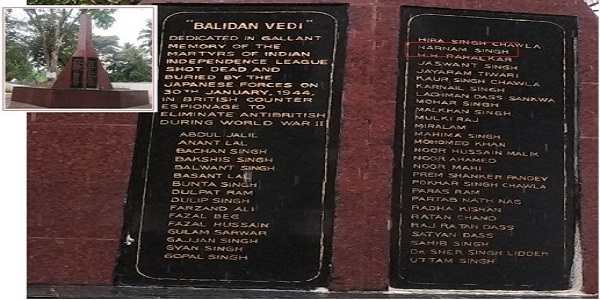 "BALIDAN VEDI"
DEDICATED IN GALLANT
MEMORY OF THE
MARTYRS OF INDIAN
INDEPENDENCE LEAGUE
SHOT DEAD AND
BURIED BY THE
JAPANESE FORCES ON
30TH JANUARY, 1944,
IN BRITISH COUNTER
ESPIONAGE TO
ELIMINATE ANTIBRITISH
DURING WORLD WAR II
ABDUL JALIL
ANANT LAL
BACHAN SINGH
BAKSHIS SINGH
BALWANT SINGH
BASANT LAL
BUNTA SINGH
DULPAT RAM
DULIP SINGH
FARZAND ALI
FAZAL BEG
FAZAL HUSSAIN
GULAM SARWAR
GAJJAN SINGH
GYAN SINGH
GOPAL SINGH
HIRA SINGH CHAWLA
HARNAM SINGH
JASWANT SINGH
JAYARAM TIWARI
KAUR SINGH CHAWLA
KARNAIL SINGH
LACHMAN DASS SANKWA
MOHAR SINGH
MALKHAN SINGH
MULKI RAJ
MIRALAM
MAHIMA SINGH
MOHOMED KHAN
NOOR HUSSAIN MALIK
NOOR AHAMED
NOOR MAHI
PREM SHANKER PANDEY
POKHAR SINGH CHAWLA
PARAS RAM
PARTAB NATH NAG
RADHA KISHAN
RATAN CHAND
RAJ RATAN DASS
SATYAN DASS
SAHIB SINGH
DR SHER SINGH LIDDER
UTTAM SINGH